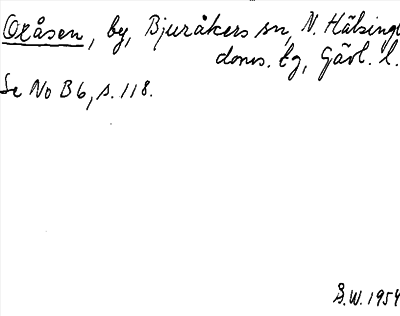 Oxåsen, by, Bjuråkers sn, N. Hälsingl.
doms. tg, Gävl. l.
Se No B6, s. 118.
S.W. 1954